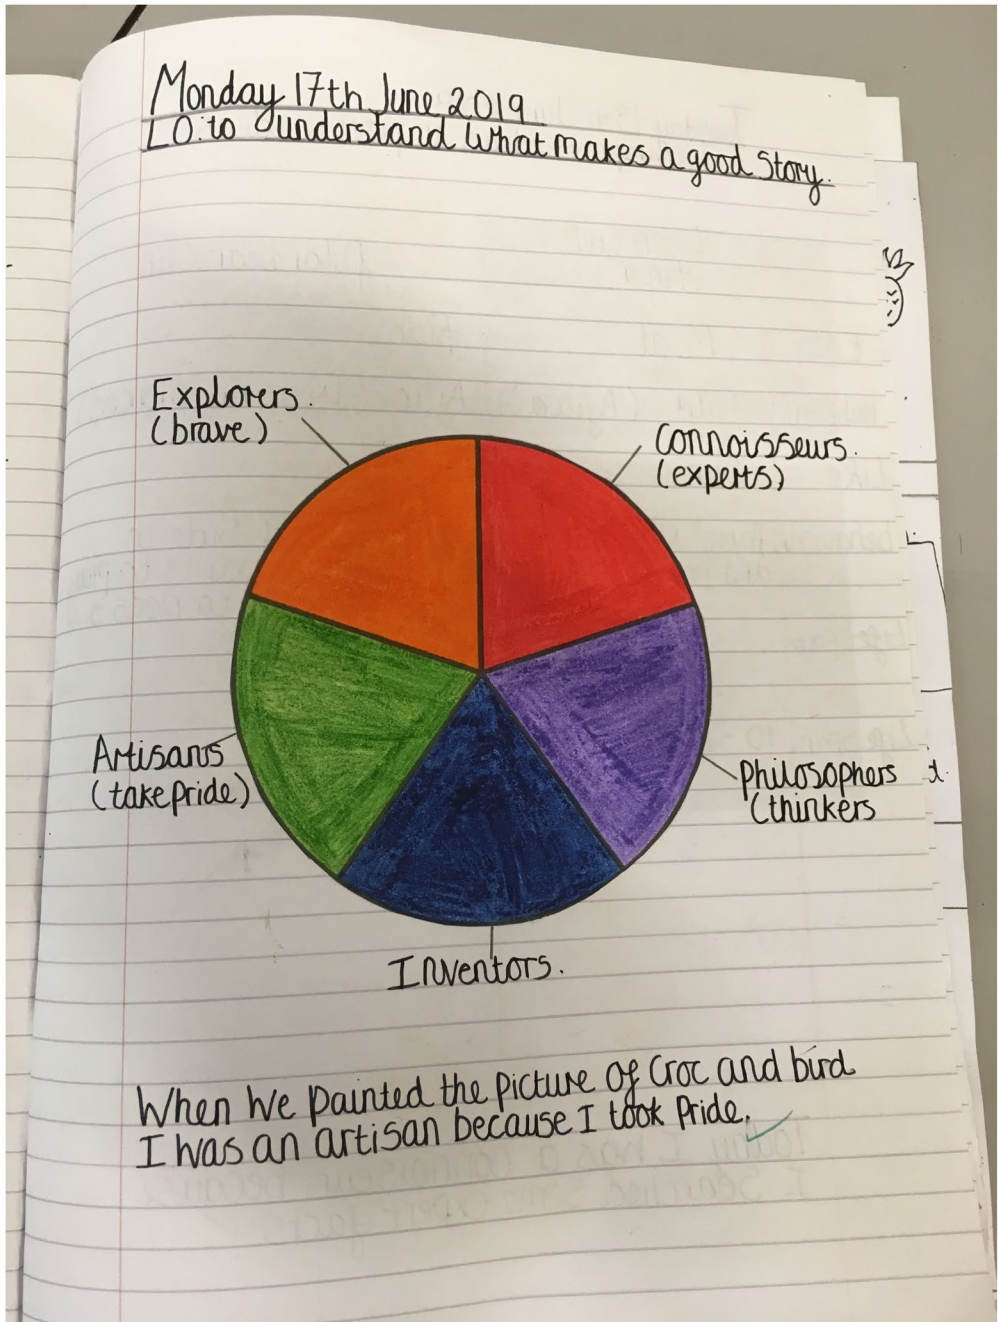 Monday 17th June 2019
LO: to understand What makes a good Story.
Explorers.
(brave)
Connoisseurs.
(experts)
Artisans
(take pride)
Philosophers
(thinkers
Inventors.
When We painted the picture of Croc and bird
I Was an artisan because I took Pride.